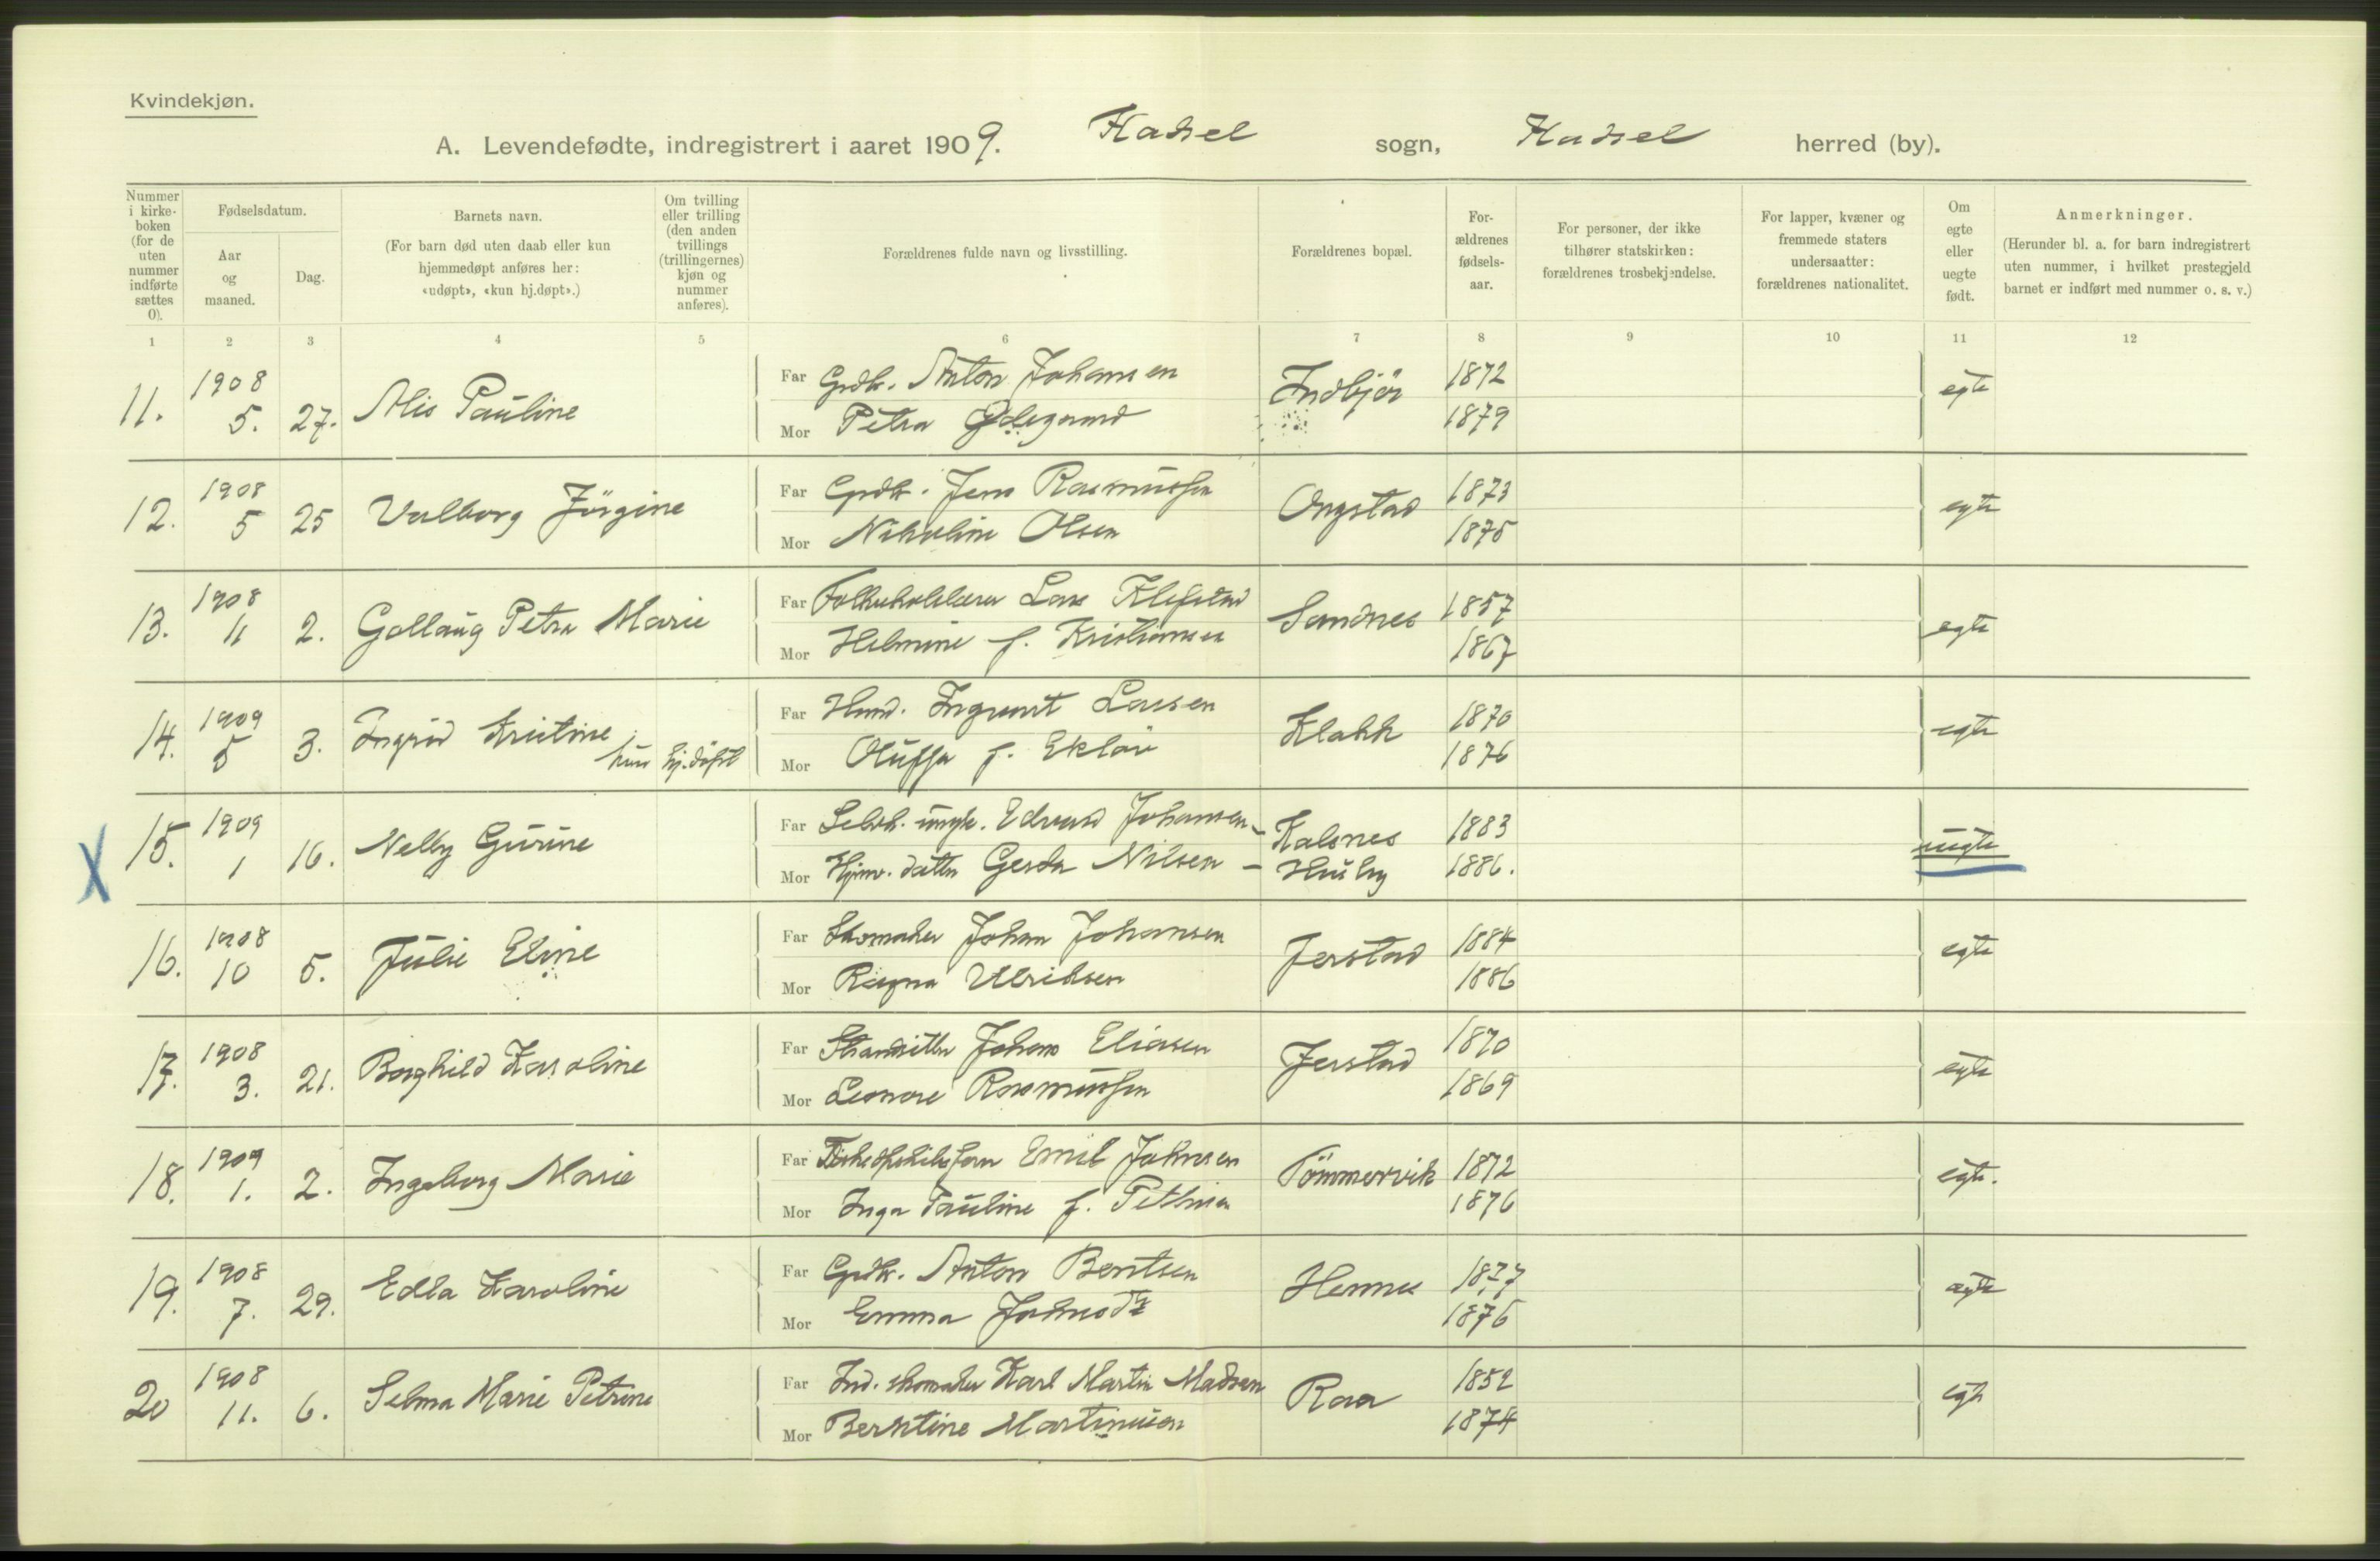 Kvindekjøn.
A. Levendefødte, indregistrert i aaret 1909. Hadsel sogn, Hadsel herred (by).
Nummer i kirke-boken (for de uten nummer indførte sættes 0).
Fødselsdatum.
Aar og maaned.
Dag.
Barnets navn.
(For barn død uten daab eller kun hjemmedøpt anføres her: «udøpt», «kun hj.døpt».)
Om tvilling eller trilling (den anden tvillings (trillingernes) kjøn og nummer anføres).
Forældrenes fulde navn og livsstilling.
Forældrenes bopæl.
For-ældrenes fødsels-aar.
For personer, der ikke tilhører statskirken: forældrenes trosbekjendelse.
For lapper, kvæner og fremmede staters undersaatter: forældrenes nationalitet.
Om egte eller uegte født.
Anmerkninger.
(Herunder bl. a. for barn indregistrert uten nummer, i hvilket prestegjeld barnet er indført med nummer o. s. v.)
1 2 3 4 5 6 7 8 9 10 11 12
11. 1908 5. 27. Alis Pauline Far Grdbr. Anton Johansen Indbjör 1872 egte
Mor Petra Ødegaard 1879
12. 1908 5 25 Valborg Jörgine Far Grdbr. Jens Rasmussen Ongstad 1873 egte
Mor Nikoline Olsen 1875
13. 1908 11 2. Gollaug Petra Marie Far Folkeskolelærer Lars Klefstad Sandnes 1857 egte
Mor Helmine f. Kristiansen 1867
14. 1909 5 3. Ingrid Kristine kun hj.døpt Far Hand. Ingvart Lassen Klakk 1870 egte
Mor Oluffa f. Ekløv 1876
X 15. 1909 1 16. Nelly Gurine Far Selvh. ungk. Edvard Johansen - Kalsnes 1883 uegte
Mor Hjmv. datter Gerda Nilsen - Husby 1886.
16. 1908 10 5. Julie Eline Far Skomaker Johan Johansen Jerstad 1884 egte
Mor Ragna Ulriksen 1886
17. 1908 3. 21. Borghild Karoline Far Strandsitter Johan Eliasen Jerstad 1870 egte
Mor Leonore Rasmussen 1869
18. 1909 1. 2. Ingeborg Marie Far Emil Johnsen Tömmervik 1872 egte.
Mor Inga Pauline f. Pettersen 1876
19. 1908 7. 29. Edla Karoline Far Grdbr. Anton Bentsen Hennes 1877 egte
Mor Emma Johnsdtr 1876
20 1908 11. 6. Selma Marie Petrine Far Ind. skomaker Karl Martin Madsen Raa 1852 egte
Mor Berntine Martinusen 1874